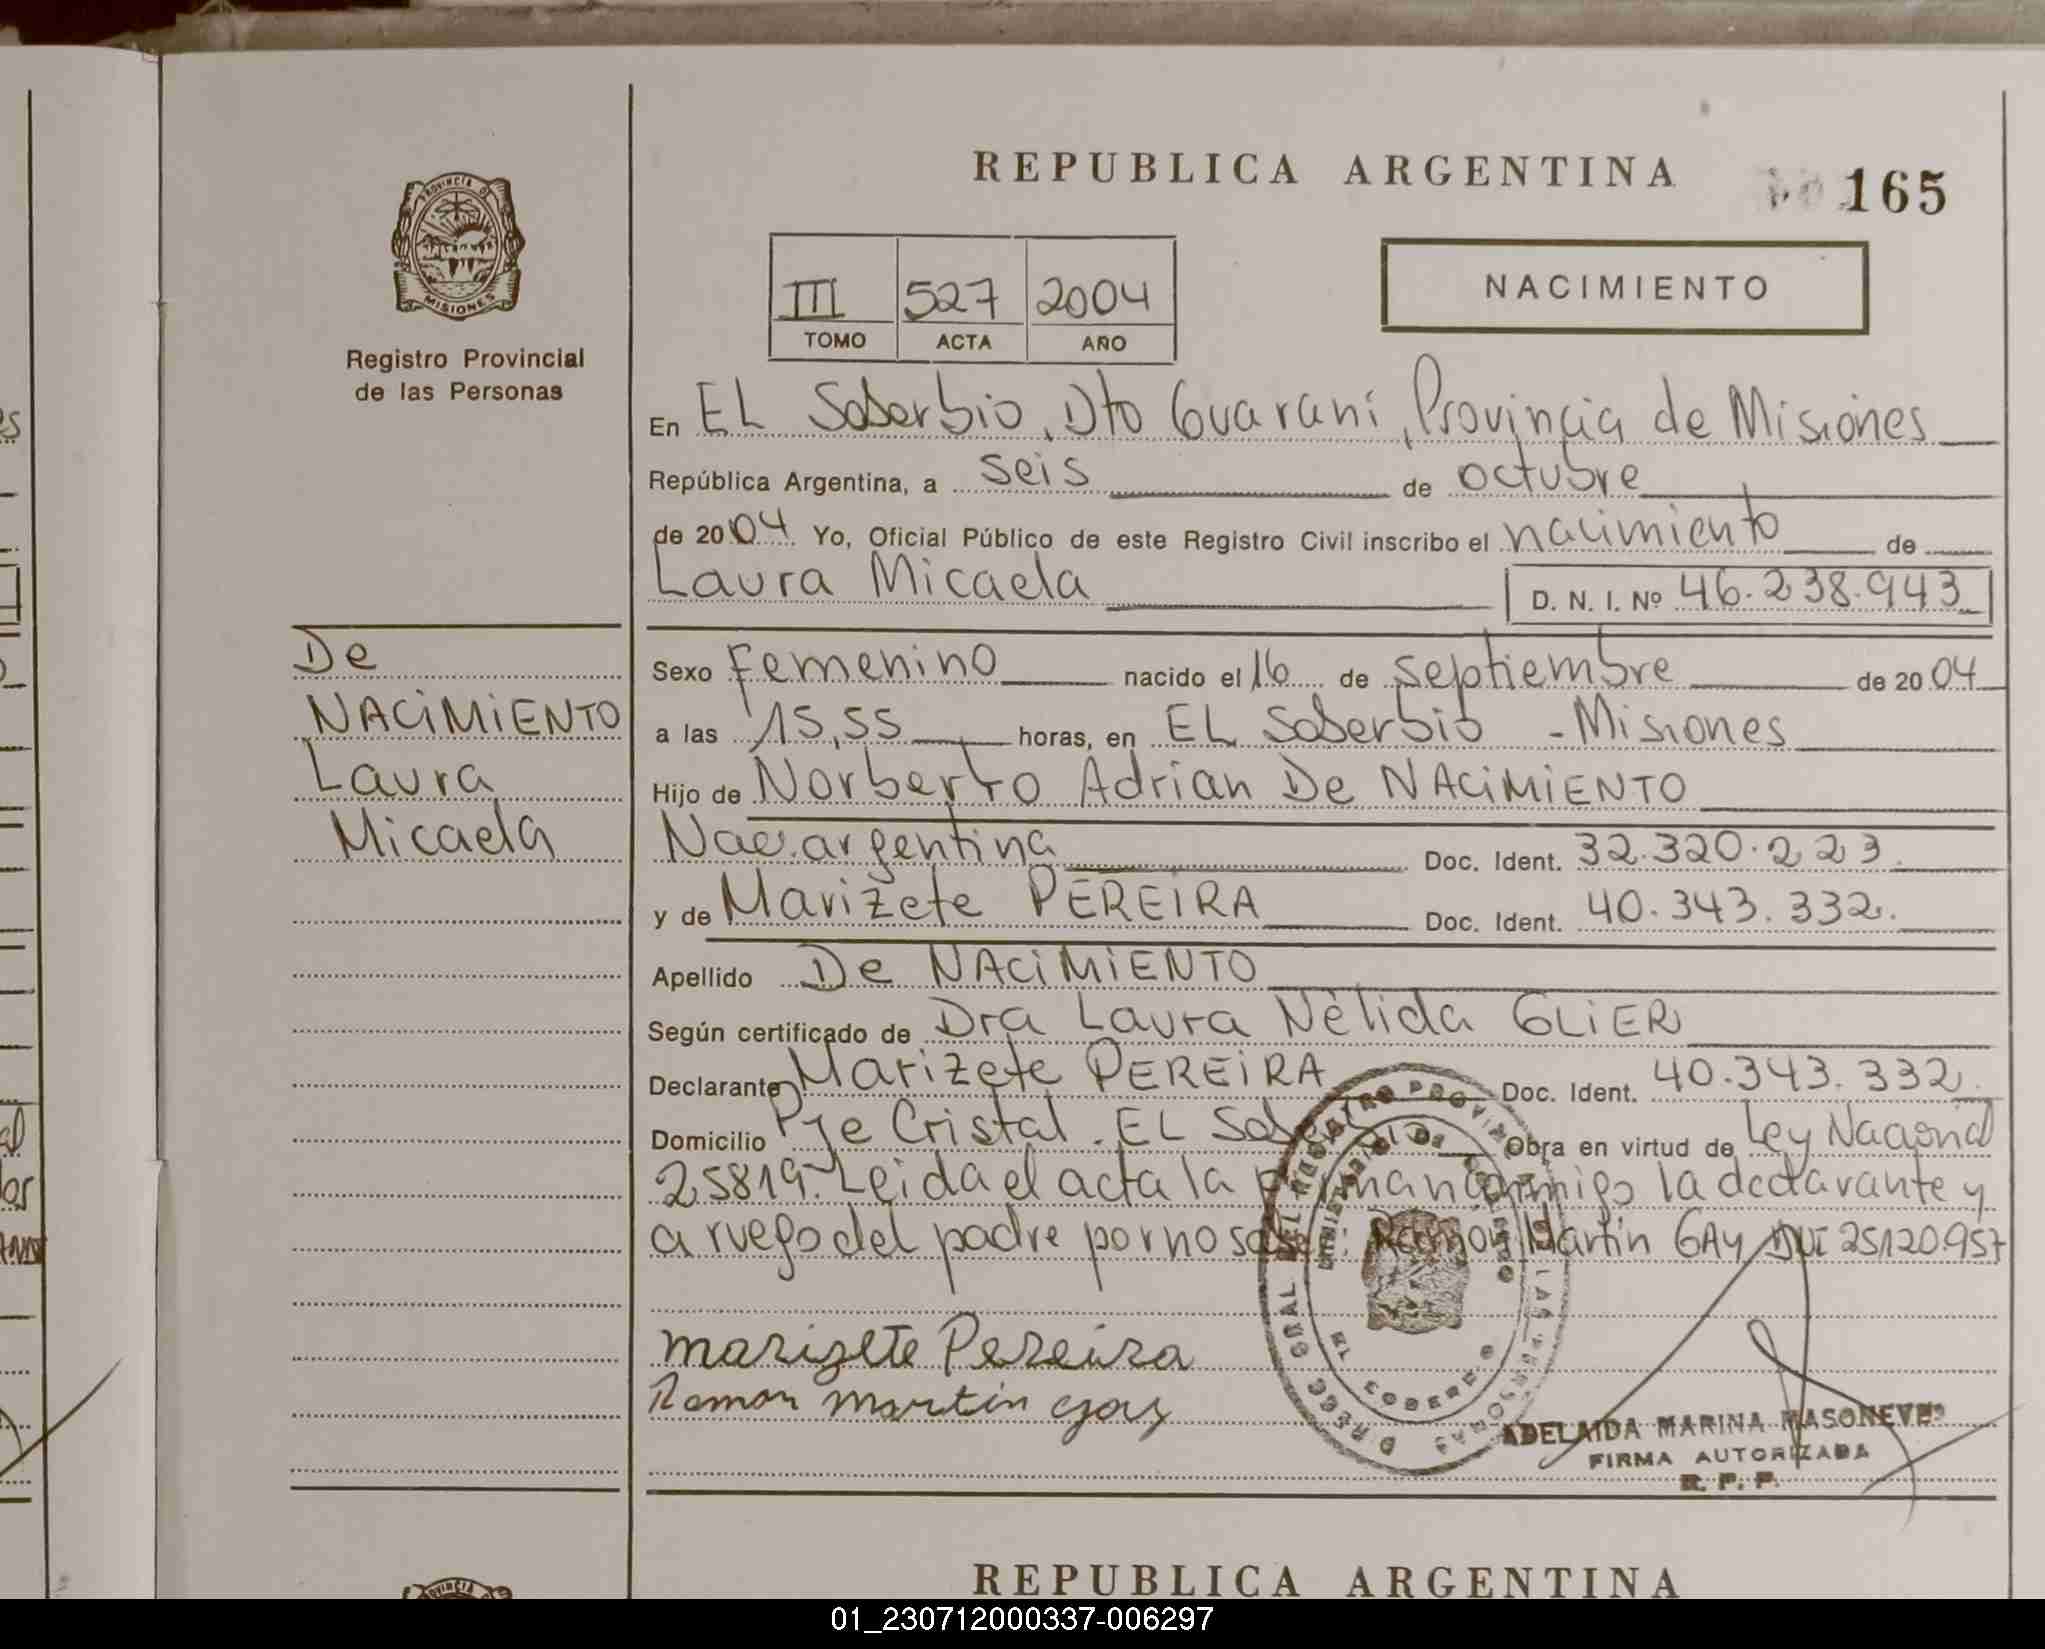 REPUBLICA ARGENTINA
165
PROVINCIA DE
MISIONES
Registro Provincial
de las Personas
III 527 2004
TOMO ACTA AÑO
NACIMIENTO
En EL Soberbio, Dto Guaraní, Provincia de Misiones
República Argentina, a seis de octubre
de 2004 Yo, Oficial Público de este Registro Civil inscribo el nacimiento de
Laura Micaela D. N. I. Nº 46.238.943
De
NACiMiENTO
Laura
Micaela
Sexo Femenino nacido el 16 de septiembre de 2004
a las 15,55 horas, en EL Soberbio - Misiones
Hijo de Norberto Adrian De NACiMiENTO
Nac. argentina Doc. Ident. 32.320.223.
y de Marizete PEREIRA Doc. Ident. 40.343.332.
Apellido De NACiMiENTO
Según certificado de Dra Laura Nélida GLiER
Declarante Marizete PEREiRA Doc. Ident. 40.343.332.
Domicilio Pje Cristal. EL Obra en virtud de Ley Nacional
25819. Leida el acta la conmigo la declarante y
a ruego del padre por no Ramón Martín GAY DNI 25120.957
marizete Pereira
Ramon martin gay
ADELAIDA MARINA
FIRMA AUTORIZADA
R. P. P.
REPUBLICA ARGENTINA
01_230712000337-006297